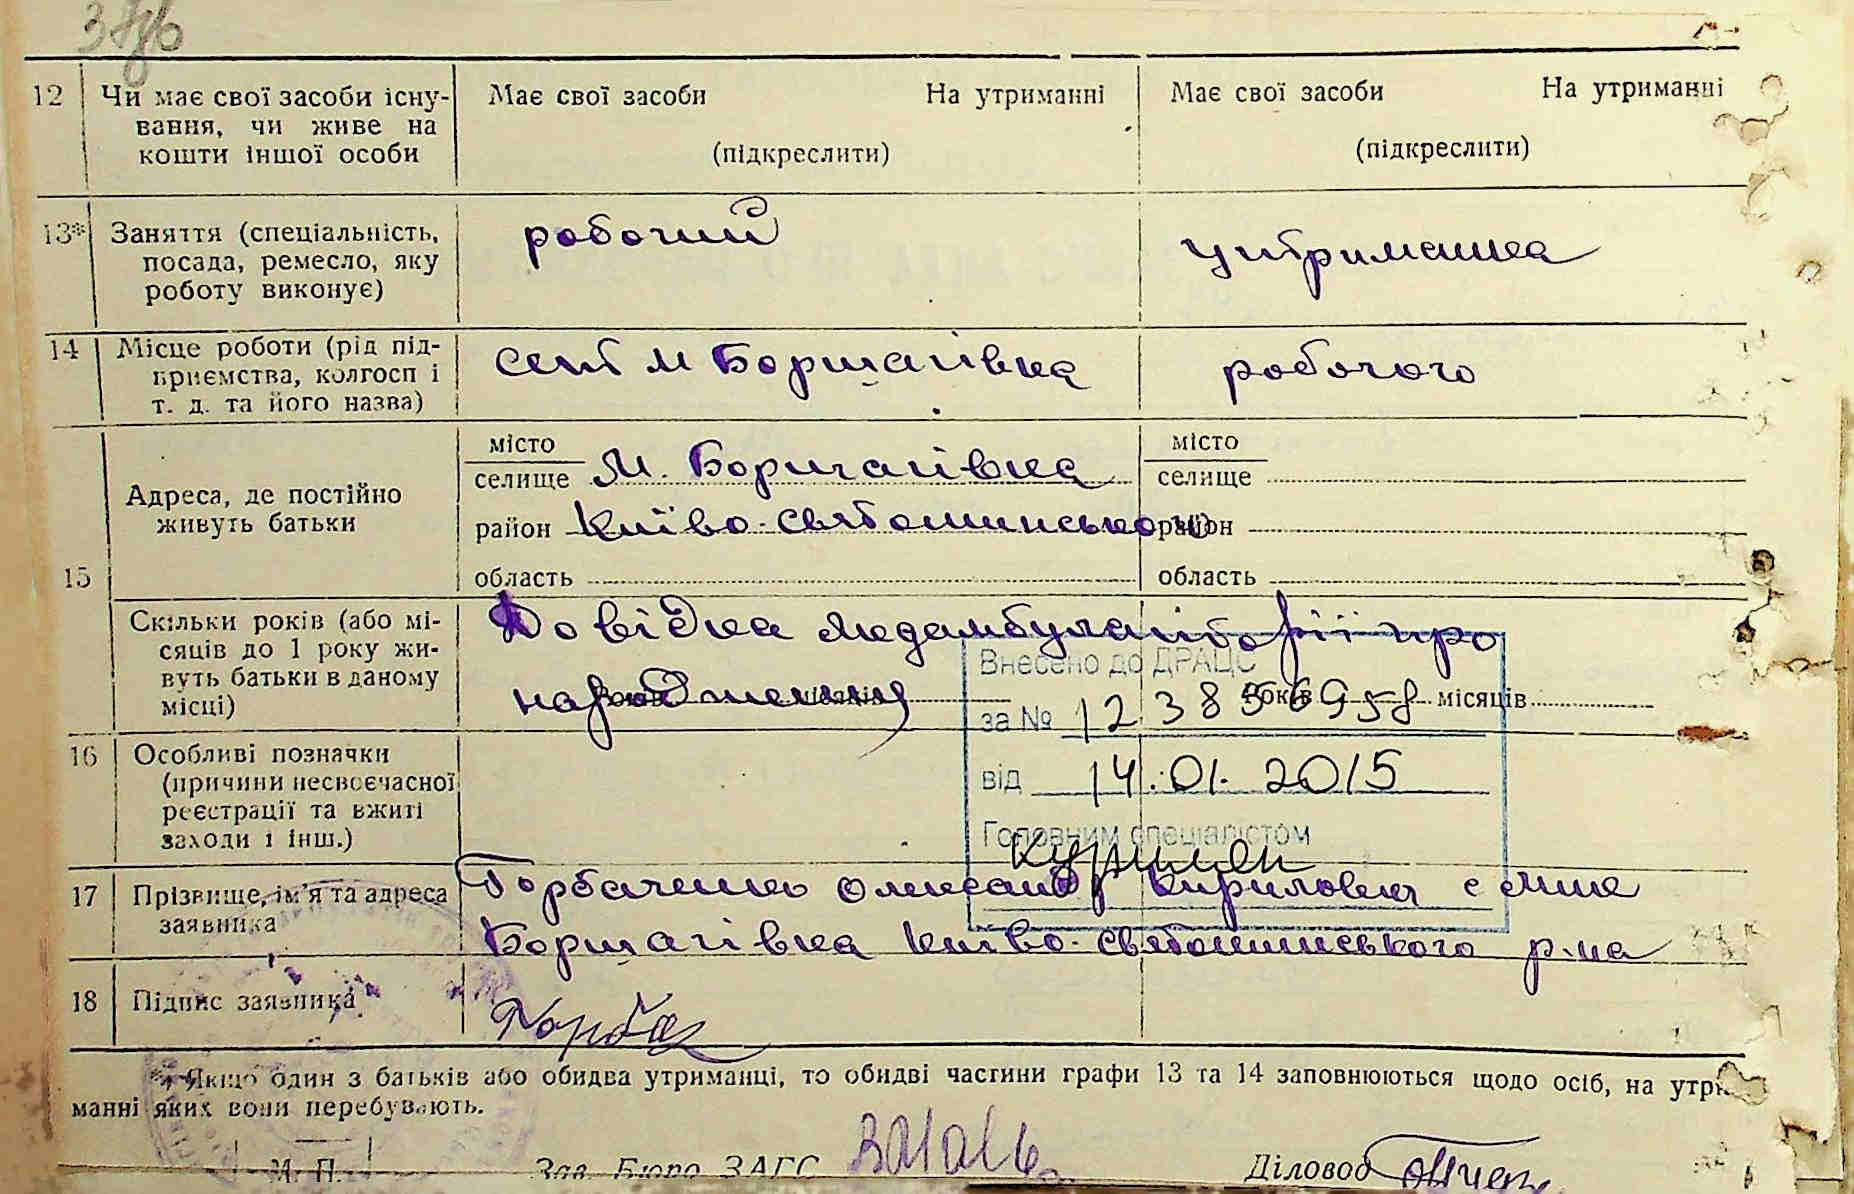 12 Чи має свої засоби існу- Має свої засоби На утриманні Має свої засоби На утриманні
вання, чи живе на
кошти іншої особи (підкреслити) (підкреслити)
13* Заняття (спеціальність, робочий утриманка
посада, ремесло, яку
роботу виконує)
14 Місце роботи (рід під- М Борщагівка робочого
приємства, колгосп і
т. д. та його назва)
15 Адреса, де постійно живуть батьки
місто місто
селище М. Борщагівка селище
район Києво-Святошинського район
область область
Скільки років (або мі- Довідка медамбулаторії про
сяців до 1 року жи-
вуть батьки в даному
місці) народження років місяців
Внесено до ДРАЦС
за №
від 14.01.2015
Головним спеціалістом
16 Особливі позначки
(причини несвоєчасної
реєстрації та вжиті
заходи і інш.)
17 Прізвище, ім'я та адреса Горбаченко Олександр Кирилович с
заявника Борщагівка Києво-Святошинського р-на
18 Підпис заявника
*) Якщо один з батьків або обидва утриманці, то обидві частини графи 13 та 14 заповнюються щодо осіб, на утри-
манні яких вони перебувають.
М. П. Зав. Бюро ЗАГС Діловод